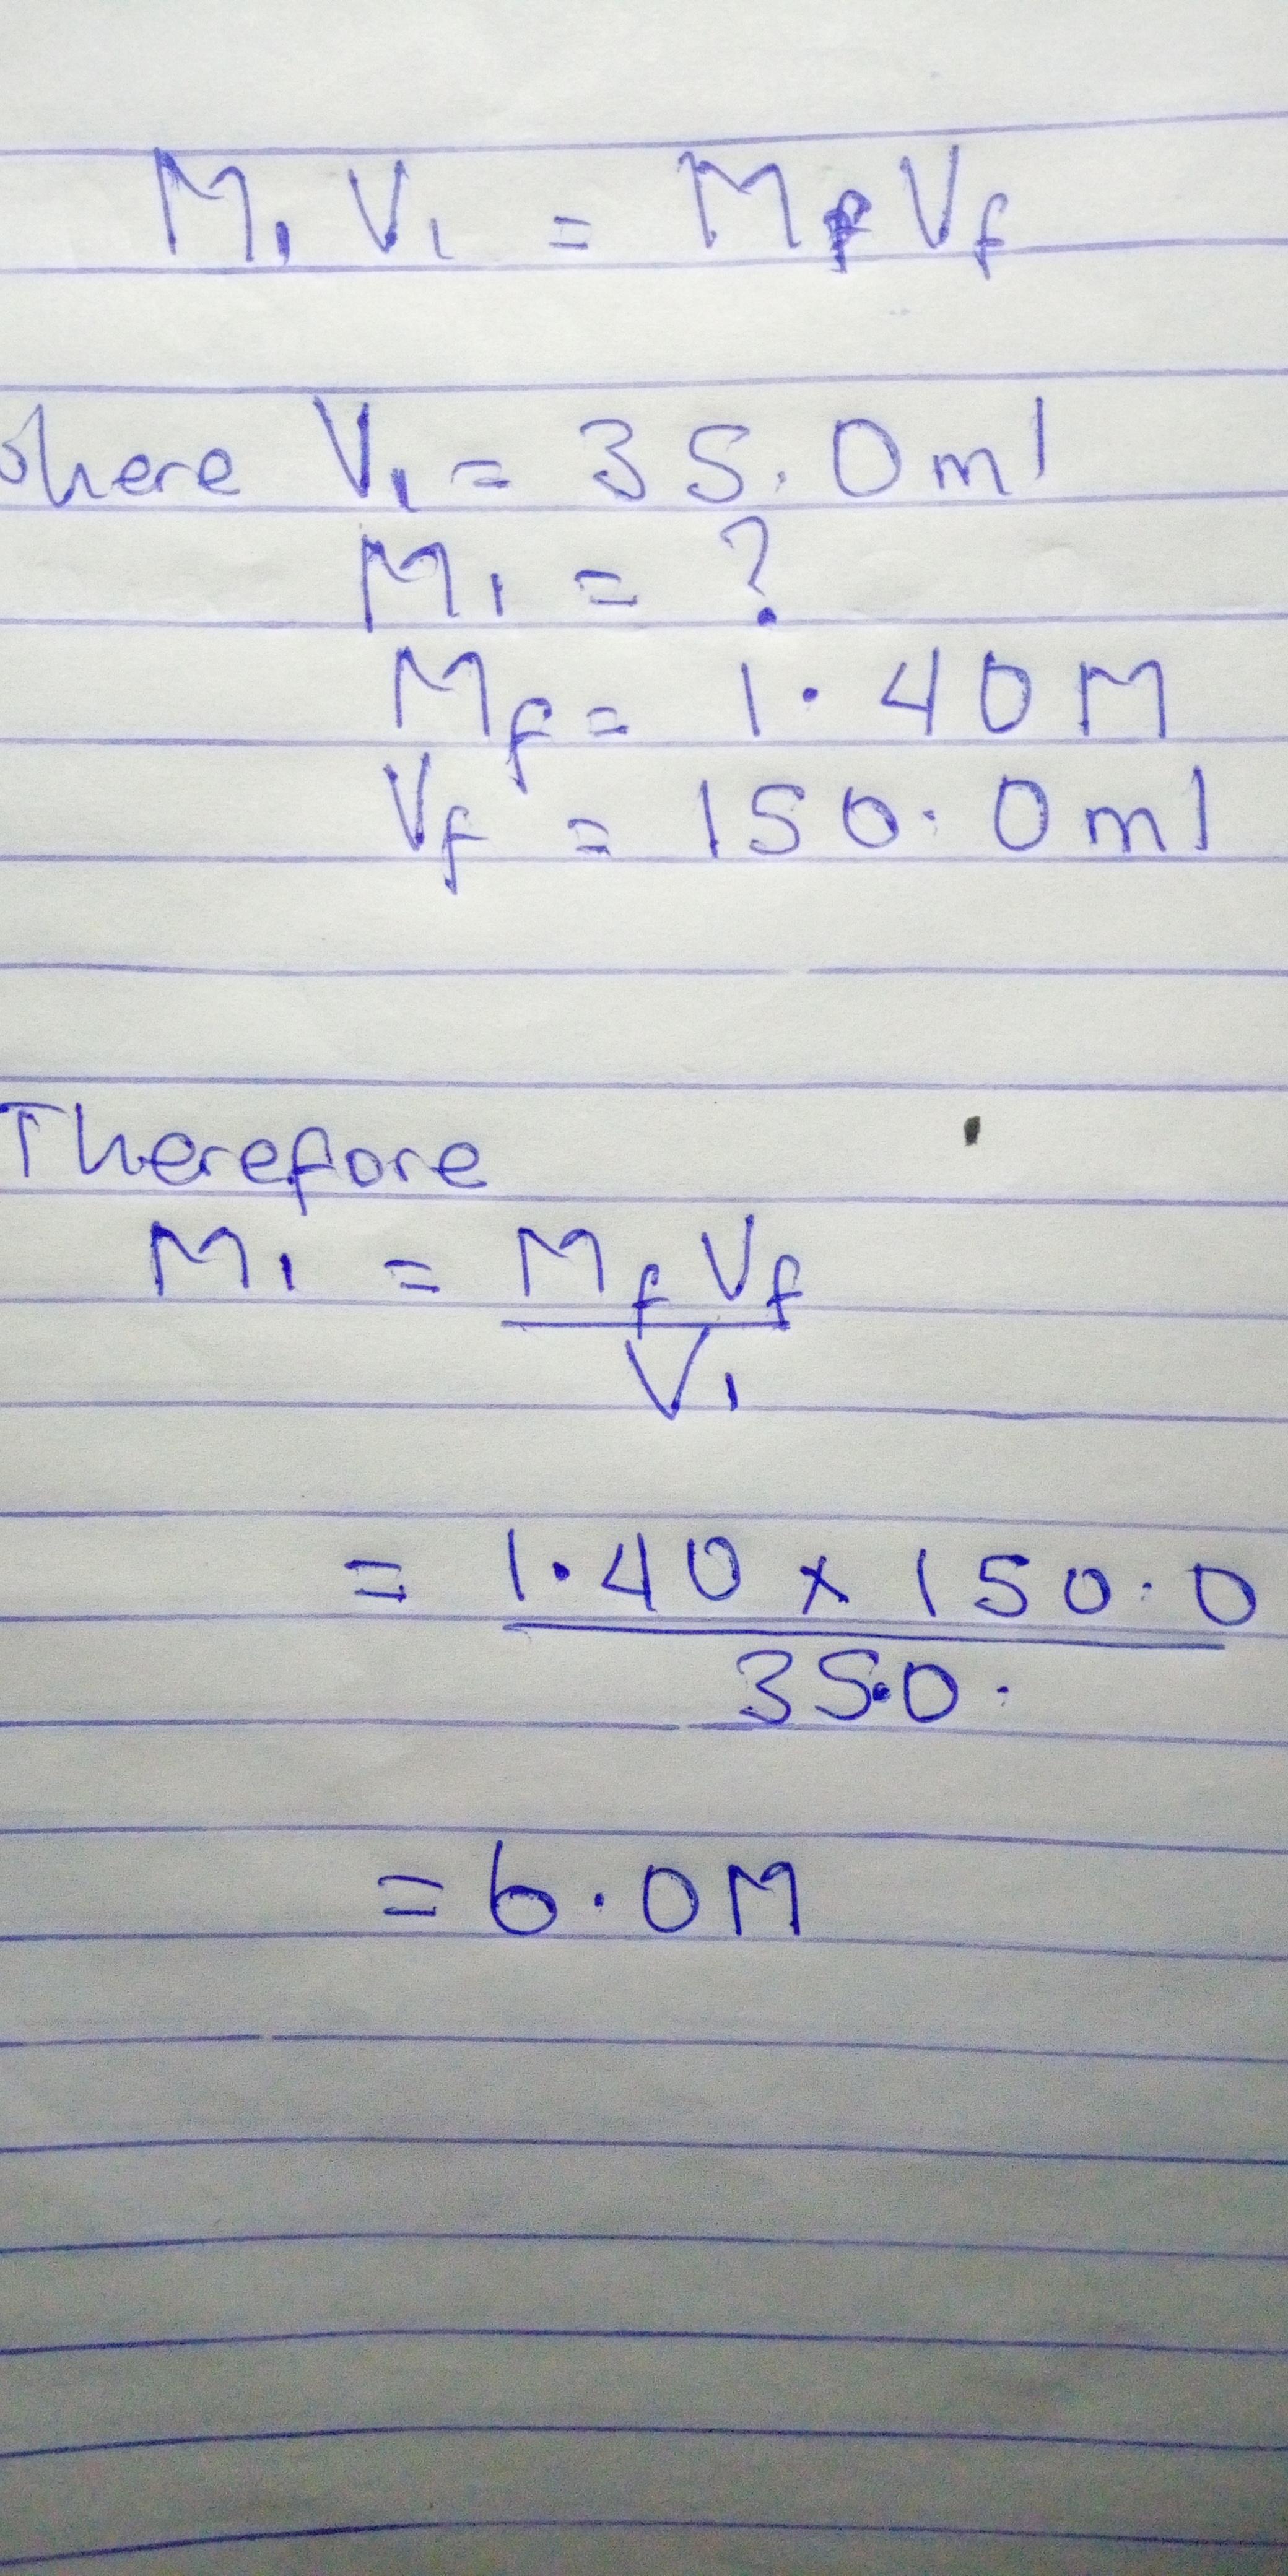 M₁ V₁ = Mf Vf
where V₁ = 35.0ml
M₁ = ?
Mf = 1.40M
Vf = 150.0ml
Therefore
M₁ = Mf Vf
V₁
= 1.40 x 150.0
35.0.
= 6.0M